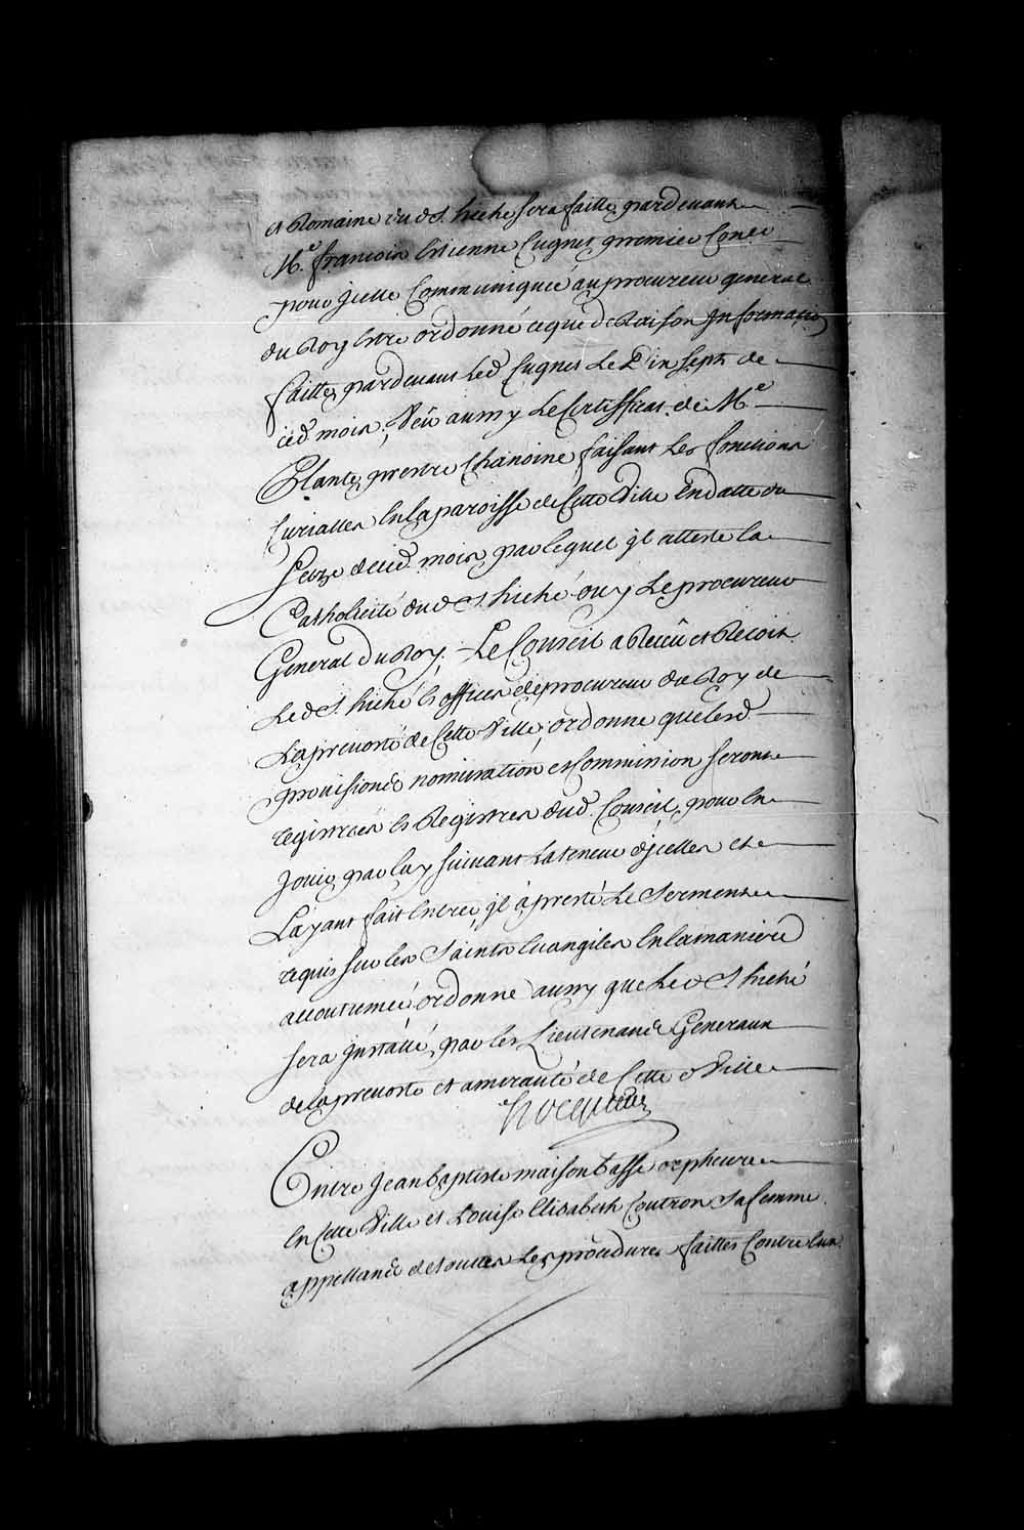 et Romaine dud. S. hiché sera faitte pardevant
Me. francois Estienne Cugnet premier Coner
pour jcelle Communiquée au procureur general
du Roy Estre ordonné ce que de Raison Jnformaõn
faitte pardevant led. Cugnet Le dix sept de
ced. mois, Veu aussy Le Certifficat de Me.
Plante prestre Chanoine faisant Les fonctions
Curialles En la paroisse de Cette Ville En datte du
Seize de ced. mois, par lequel jl atteste la
Catholicité dud. S. hiché ouy Le procureur
General du Roy, Le Conseil a Receu et Reçoit
Led. S. hiché Es offices de procureur du Roy de
La prevosté de Cette Ville, ordonne que lesd.
provisions nomination et Commission seront
registrées Es Registres dud. Conseil, pour En
Jouir par luy suivant La teneur d'jcelles et
L'ayant fait Entrer jl a presté Le Serment
requis sur les Saints Evangiles En la maniere
accoutumée, ordonne aussy que Led. S. hiché
sera jnstallé, par les Lieutenants Generaux
de la prevosté et amirauté de Cette d. Ville
hocquart
Entre Jean Baptiste maisonbasse orphevre
En Cette Ville et Louise Elisabeth Coutron sa femme
appellants de toutes Les procedures faittes Contre Eux